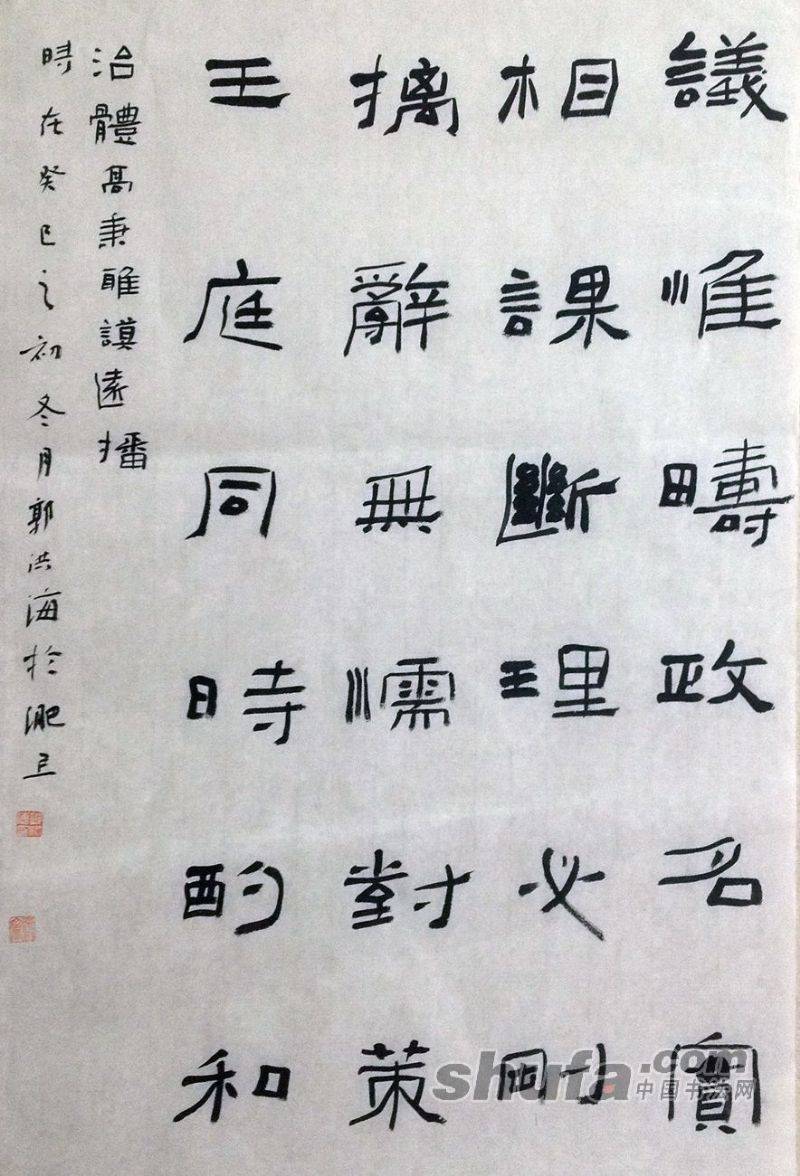 議惟疇政名實
相課斷理必剛
摛辭無懦對策
王庭同時酌和
治體高秉雅謨遠播
時在癸巳之初冬月郭洪海於淝上
shufa.com
中国书法网